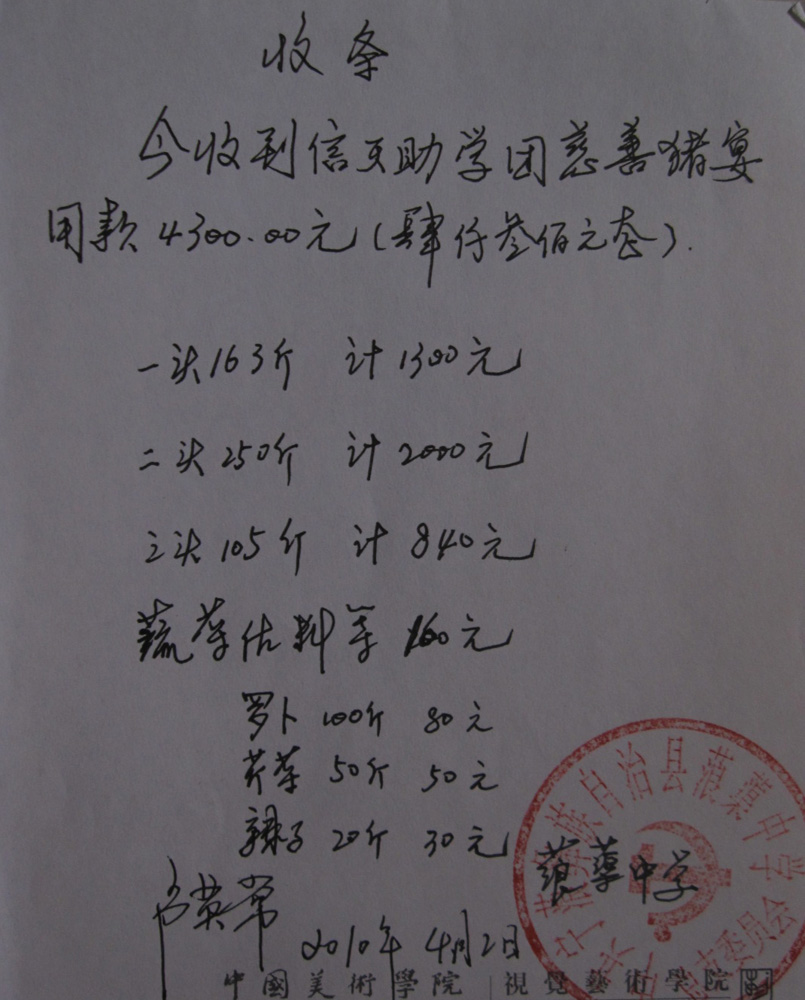 收条
今收到信天助学团慈善猪宴
用款4300.00元(肆仟叁佰元整).
一头163斤 计1300元
二头250斤 计2000元
三头105斤 计840元
蔬菜佐料等 160元
罗卜 100斤 80元
芹菜 50斤 50元
辣子 20斤 30元
蒗蕖中学
2010年4月2日
族自治县蒗蕖中学
委员会
中國美術學院 視覺藝術學院